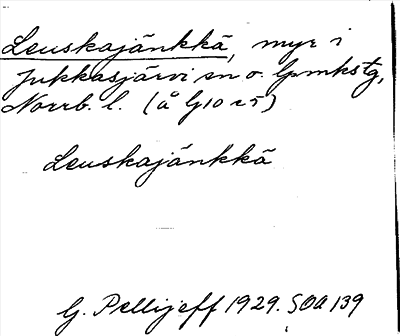 Leuskajänkkä, myr i
Jukkasjärvi sn o. lpmkstg,
Norrb. l. (å G10 c5)
Leuskajänkkä
G. Pellijeff 1929. SOA 139